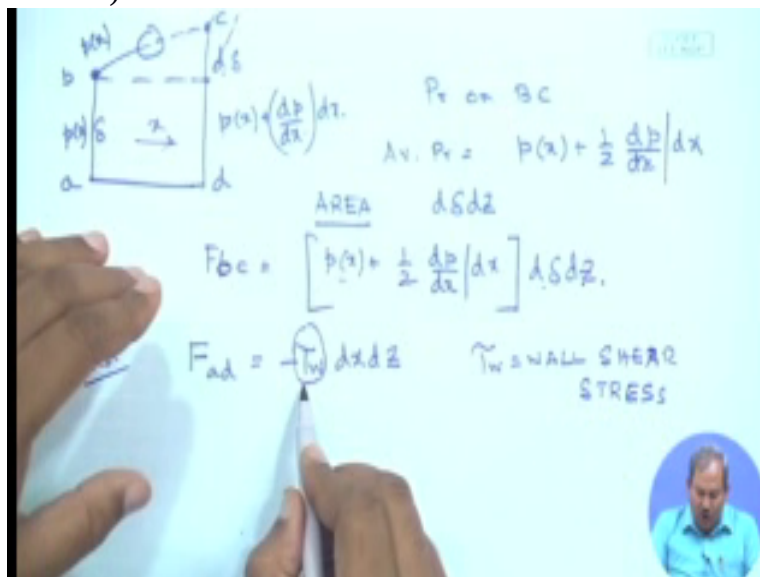 c
p(x)
b
dδ
p(x) δ
x
p(x) + (dp/dx) dx.
a
d
Pr on BC
Av. Pr = p(x) + 1/2 dp/dx | dx
AREA dδdz
Fbc = [p(x) + 1/2 dp/dx | dx] dδdz.
Fad = -τw dxdz
τw = WALL SHEAR
STRESS